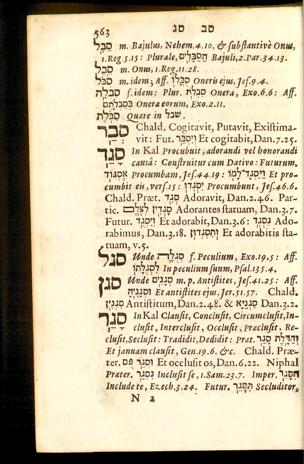 563 סב סג
סַבָּל m. Bajulus, Nehem.4.10, & substantivè Onus,
1.Reg.5.15: Plurale, הַסַּבָּלִים Bajuli, 2.Par.34.13.
סֵבֶל m. Onus, 1.Reg.11.28.
סֹבֶל m. idem; Aff. Oneris ejus, Jes.9.4.
f. idem: Plur. סִבְלֹת Onera, Exo.6.6: Aff.
בְּסִבְלֹתָם Onera eorum, Exo.2.11.
Quære in שבל
סְבַר Chald. Cogitavit, Putavit, Existima-
vit: Fut. וְיִסְבַּר Et cogitabit, Dan.7.25.
סָגַד In Kal Procubuit, adorandi vel honorandi
causâ: Construitur cum Dativo: Futurum,
אֶסְגּוֹד Procumbam, Jes.44.19: Et pro-
cumbit ei, vers.15: יִסְגְּדוּ Procumbunt, Jes.46.6.
Chald. Præt. סְגִד Adoravit, Dan.2.46. Par-
tic. Adorantes statuam, Dan.3.7.
Futur. וְיִסְגֻּד Et adorabit, Dan.3.6: Ado-
rabimus, Dan.3.18. וְתִסְגְּדוּן Et adorabitis sta-
tuam, v.5.
סגל Unde סְגֻלָּה f. Peculium, Exo.19.5: Aff.
לִסְגֻלָּתוֹ In peculium suum, Psal.135.4.
סגן Unde סְגָנִים m. p. Antistites, Jes.41.25: Aff.
וּסְגָנֶיהָ Et antistites ejus, Jer.51.57. Chald.
סִגְנִין Antistitum, Dan.2.48. & סִגְנַיָּא Dan.3.2.
סָגַר In Kal Clausit, Conclusit, Circumclusit, In-
clusit, Interclusit, Occlusit, Præclusit, Re-
clusit, Seclusit: Tradidit, Dedidit: Præt.
Et januam clausit, Gen.19.6. &c. Chald. Præ-
ter. וּסֲגַר Et occlusit os, Dan.6.22. Niphal
Præter. נִסְגַּר Inclusit se, 1.Sam.23.7. Imper. הִסָּגֵר
Include te, Ezech.3.24. Futur. תִּסָּגֵר Secluditor,
N 2